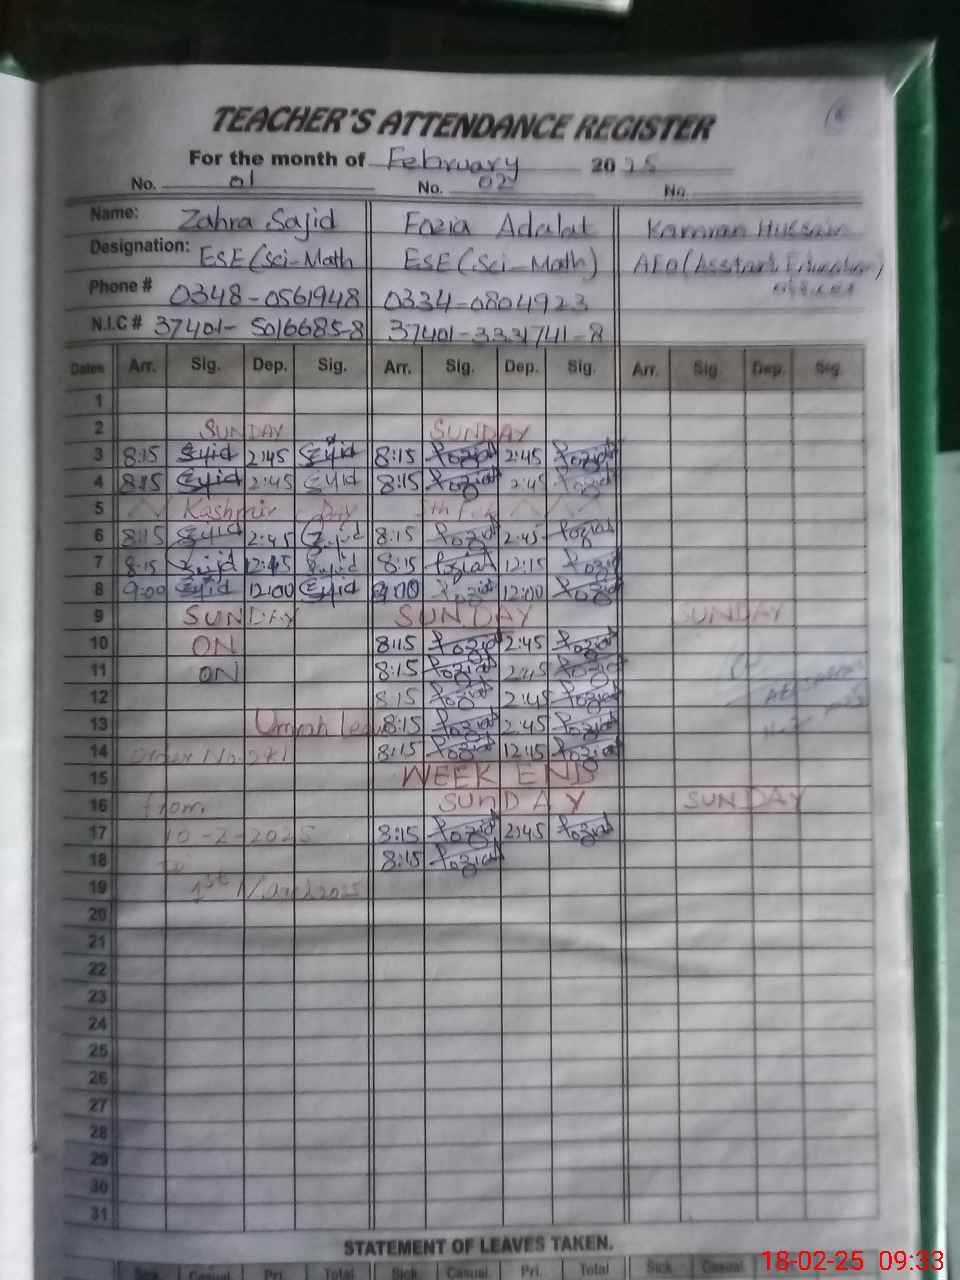 TEACHER'S ATTENDANCE REGISTER
For the month of February 2025
No. 01 No. 02 No.
Name: Zahra Sajid Fozia Adalat Kamran Hussain
Designation: ESE (Sci-Math ESE (Sci-Math) AEO (Assistant Education
Phone # 0348-0561948 0334-0804923 officer
N.I.C # 37401-5016685-8 37401-3331741-8
Dates Arr. Sig. Dep. Sig. Arr. Sig. Dep. Sig. Arr. Sig Dep. Sig.
1
2 SUNDAY SUNDAY
3 8:15 Sajid 2:45 Sajid 8:15 Fozia 2:45 Fozia
4 8:15 Sajid 2:45 Sajid 8:15 Fozia 2:45 Fozia
5 Kashmir Day 5th Feb
6 8:15 Sajid 2:45 Sajid 8:15 Fozia 2:45 Fozia
7 8:15 Sajid 12:45 Sajid 8:15 Fozia 12:15 Fozia
8 9:00 Sajid 12:00 Sajid 9:00 Fozia 12:00 Fozia
9 SUNDAY SUNDAY SUNDAY
10 ON 8:15 Fozia 2:45 Fozia
11 ON 8:15 Fozia 2:45 Fozia
12 8:15 Fozia 2:45 Fozia
13 Umrah Leave 8:15 Fozia 2:45 Fozia
14 Order No. 8:15 Fozia 12:15 Fozia
15 WEEK ENDS
16 from SUNDAY SUNDAY
17 10-2-2025 8:15 Fozia 2:45 Fozia
18 to 8:15 Fozia
19 1st March 2025
20
21
22
23
24
25
26
27
28
29
30
31
STATEMENT OF LEAVES TAKEN.
Sick Casual Pri. Total Sick Casual. Pri. Total Sick. Casual.
18-02-25 09:33